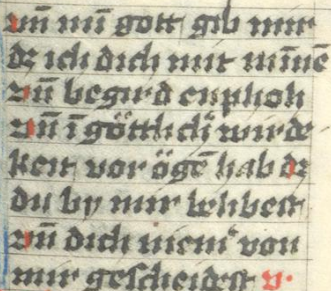 vnͤ min̄ gott gib mir
dc ich dich mit min̄e
vn̄ begird enpfoh
vn̄ ī gõttlich' wirde-
keit vor ögē hab dc
du by mir belibest
vn̄ dich niem' von
mir gescheidest v·